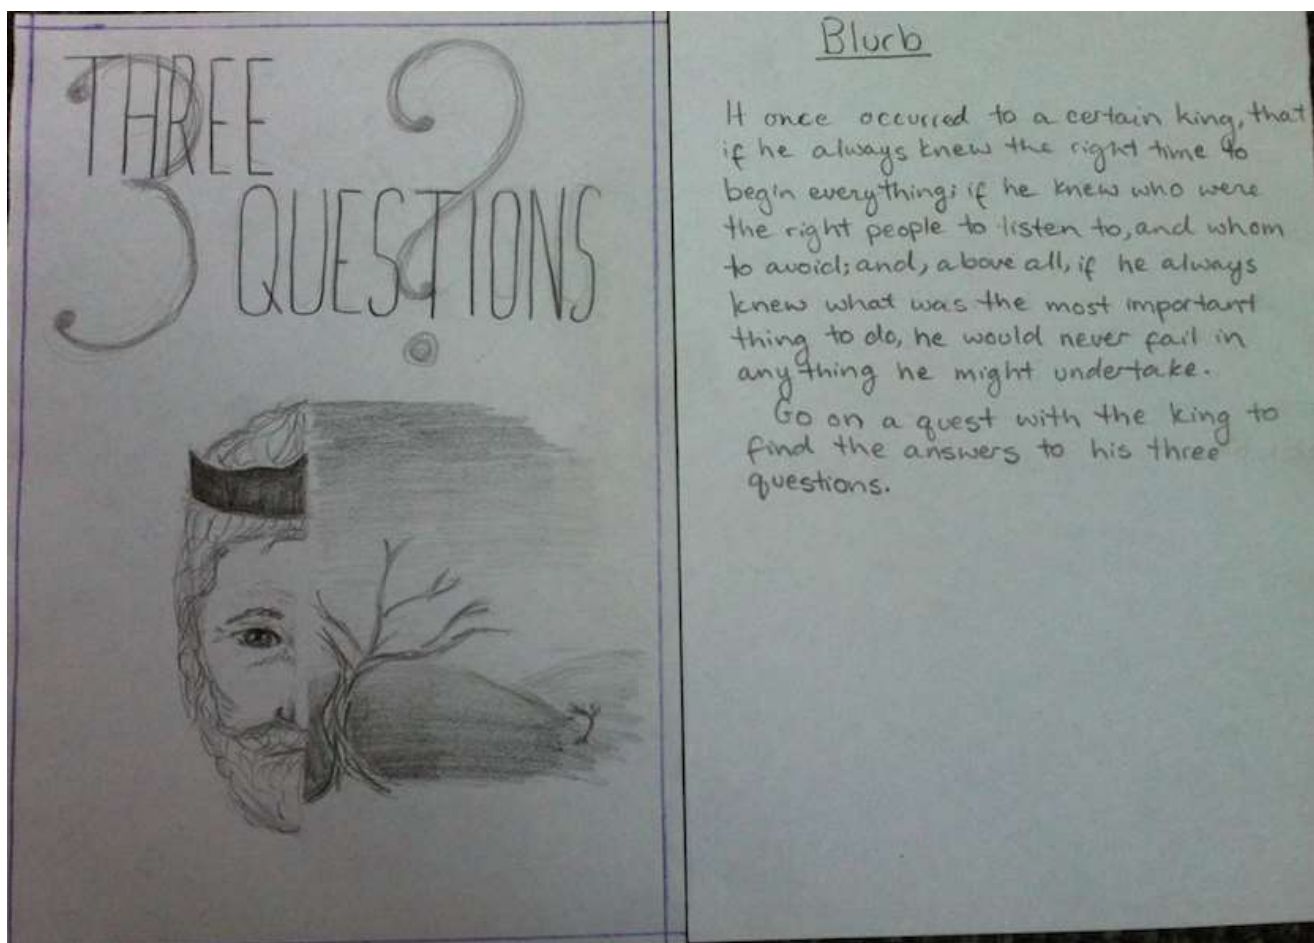 THREE
QUESTIONS
3 ?
Blurb
It once occurred to a certain king, that
if he always knew the right time to
begin everything; if he knew who were
the right people to listen to, and whom
to avoid; and, above all, if he always
knew what was the most important
thing to do, he would never fail in
anything he might undertake.
Go on a quest with the king to
find the answers to his three
questions.